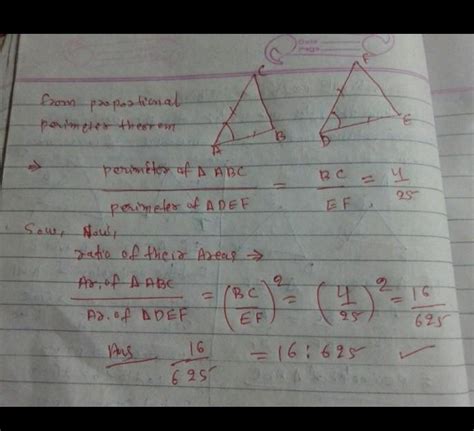 Date
Page
C
F
From proportional
perimeter theorem
A
B
D
E
⇒ perimeter of Δ ABC / perimeter of Δ DEF = BC / EF = 4 / 25
Now,
ratio of their Areas →
Ar. of Δ ABC / Ar. of Δ DEF = (BC / EF)² = (4 / 25)² = 16 / 625
Ans 16 / 625 = 16 : 625 ✓